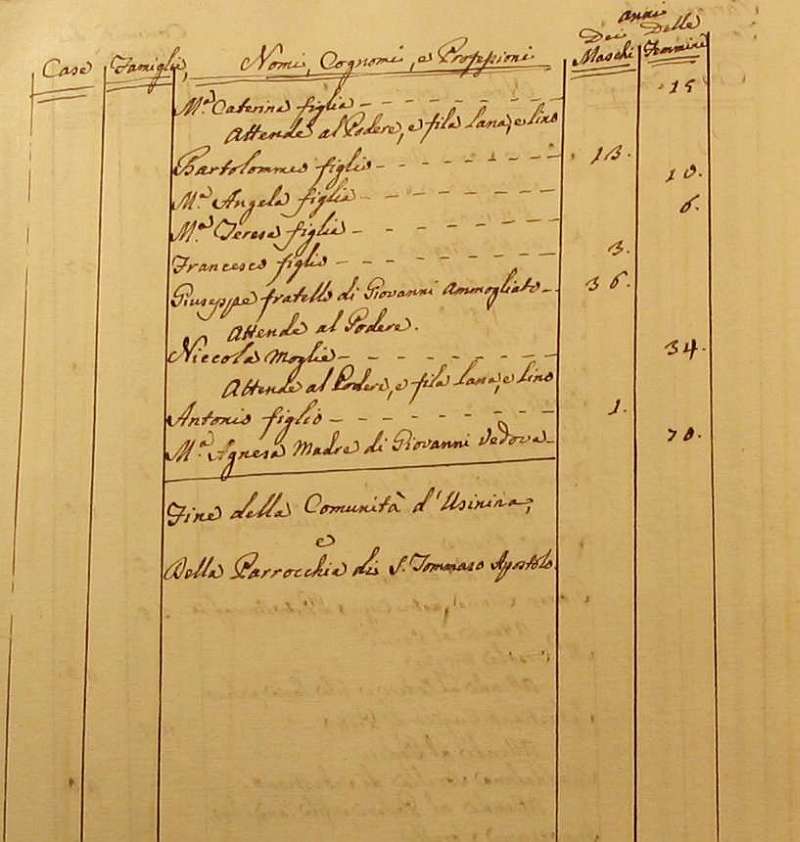 anni
Dei Delle
Case Famiglie, Nomi, Cognomi, e Professioni Maschi Femmine
M.a Caterina figlia 15
Attende al Podere, e fila lana, e lino
Bartolommeo figlio 13.
M.a Angela figlia 10.
M.a Teresa figlia 6.
Francesco figlio 3.
Giuseppe fratello di Giovanni Ammogliato 36.
Attende al Podere.
Niccola Moglie 34.
Attende al Podere, e fila lana, e lino
Antonio figlio 1.
M.a Agnesa Madre di Giovanni Vedova 70.
Fine della Comunità d'Usinina;
e
Della Parrocchia di S. Tommaso Apostolo.